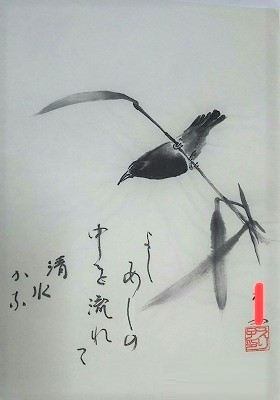 よし
あしの
中を流れて
清水
かな